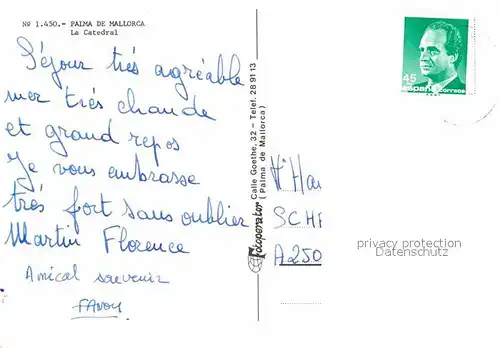 Nº 1.450.- PALMA DE MALLORCA
La Catedral
Séjour très agréable
mer très chaude
et grand repos
Je vous embrasse
très fort sans oublier
Martin Florence
Amical souvenir
Fotoperator Calle Goethe, 32 - Telef. 28 91 13
(Palma de Mallorca)
45
España correos
SCHE
A250
privacy protection
Datenschutz